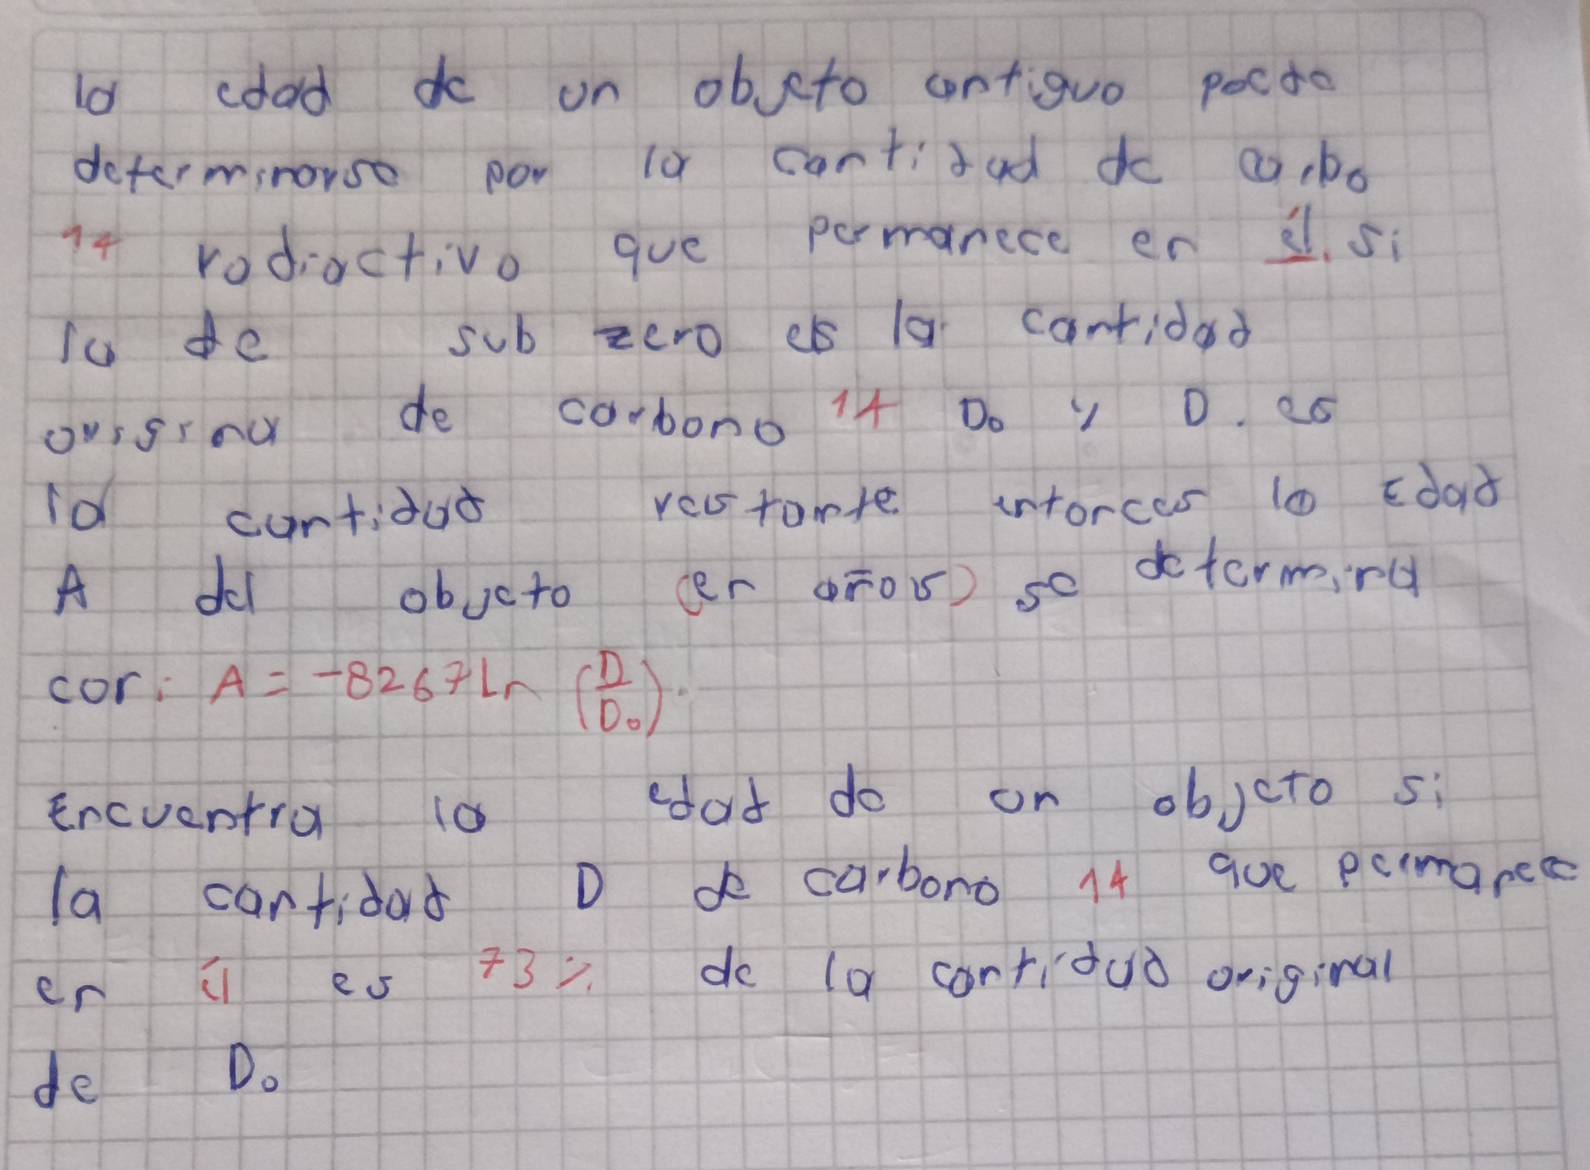 la edad de un objeto antiguo pocde
determinarse por la cantidad de carbo
14 rodiactivo que permanece en él. si
la de sub zero es la cantidad
origina de carbono 14 D₀ y D. es
la cantidad restante entonces la Edad
A del objeto (en años) se determina
con: A = -8267 Ln (D/D₀).
Encuentra la edad de un objeto si
la cantidad D de carbono 14 que permanece
en él es 73% de la cantidad original
de D₀